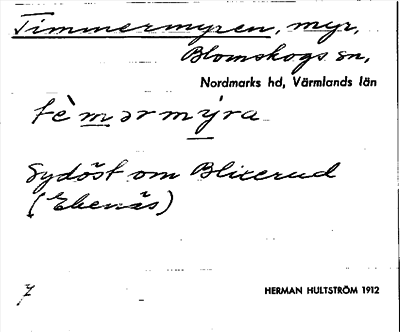 Timmermyren, myr,
Blomskogs sn,
Nordmarks hd, Värmlands län
tèmərmýra
Sydöst om Blixerud
(Ekenäs)
7
HERMAN HULTSTRÖM 1912